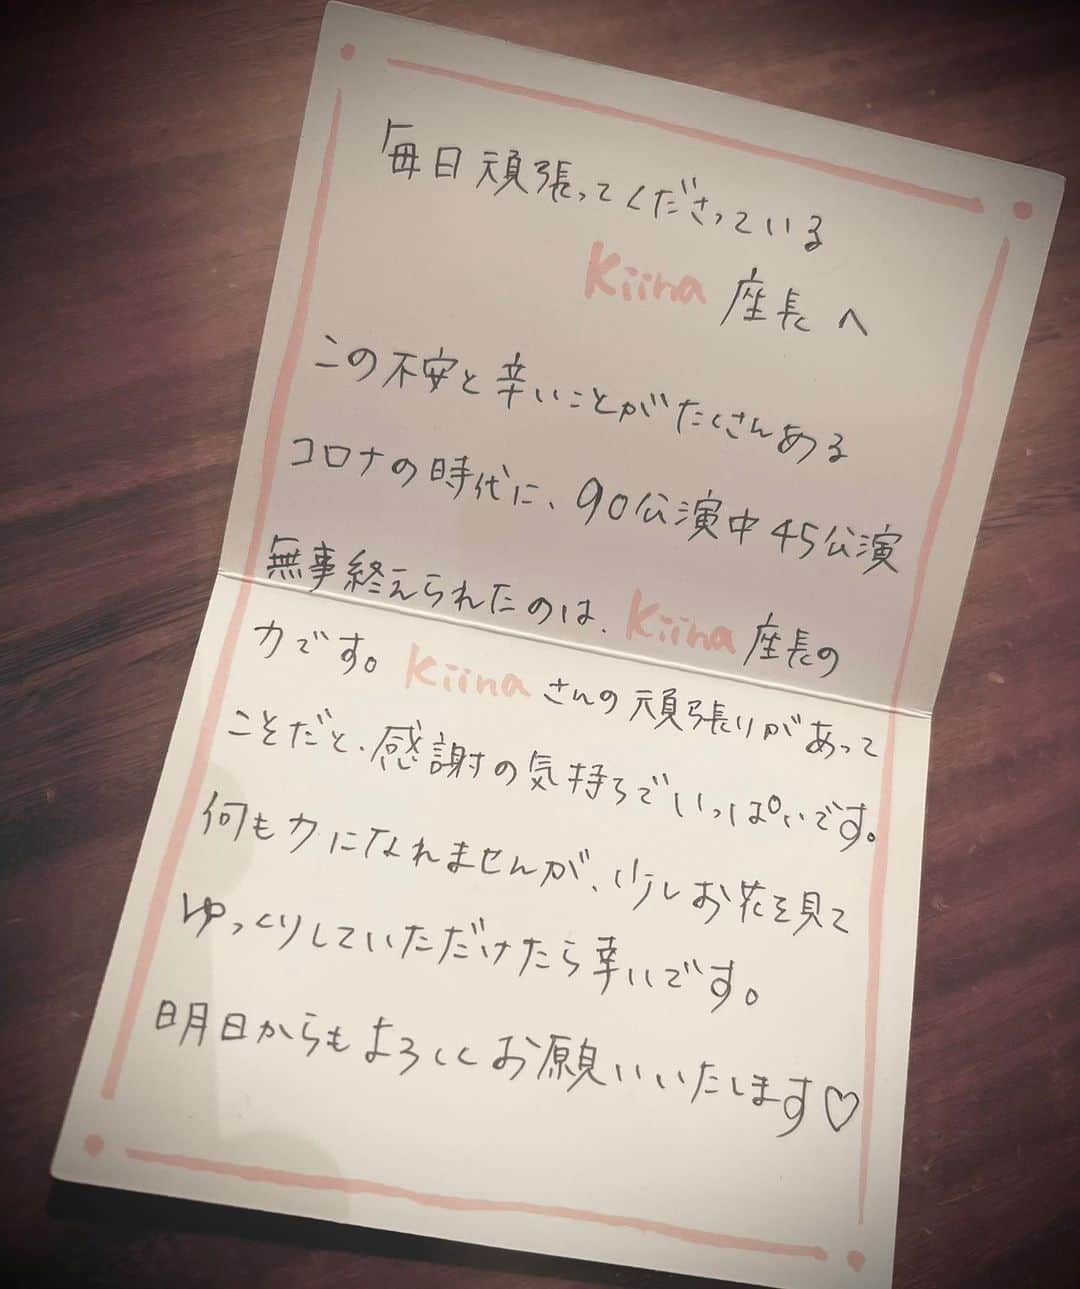 毎日頑張ってくださっている
Kiina 座長へ
この不安と辛いことがたくさんある
コロナの時代に、90公演中45公演
無事終えられたのは、Kiina座長の
力です。Kiinaさんの頑張りがあって
ことだと、感謝の気持ちでいっぱいです。
何も力になれませんが、少しお花を見て
ゆっくりしていただけたら幸いです。
明日からもよろしくお願いいたします♡